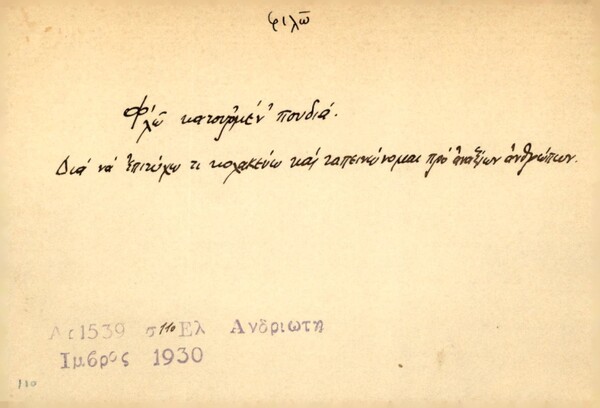 φιλῶ
Φ'λῶ κατουρ'μέν' πουδιά.
Διά νά ἐπιτύχω τι κολακεύω καί ταπεινώνομαι πρό ἀναξίων ἀνθρώπων.
Λ: 1539 σ 110 Ελ Ανδριωτη
Ιμβρος 1930
110